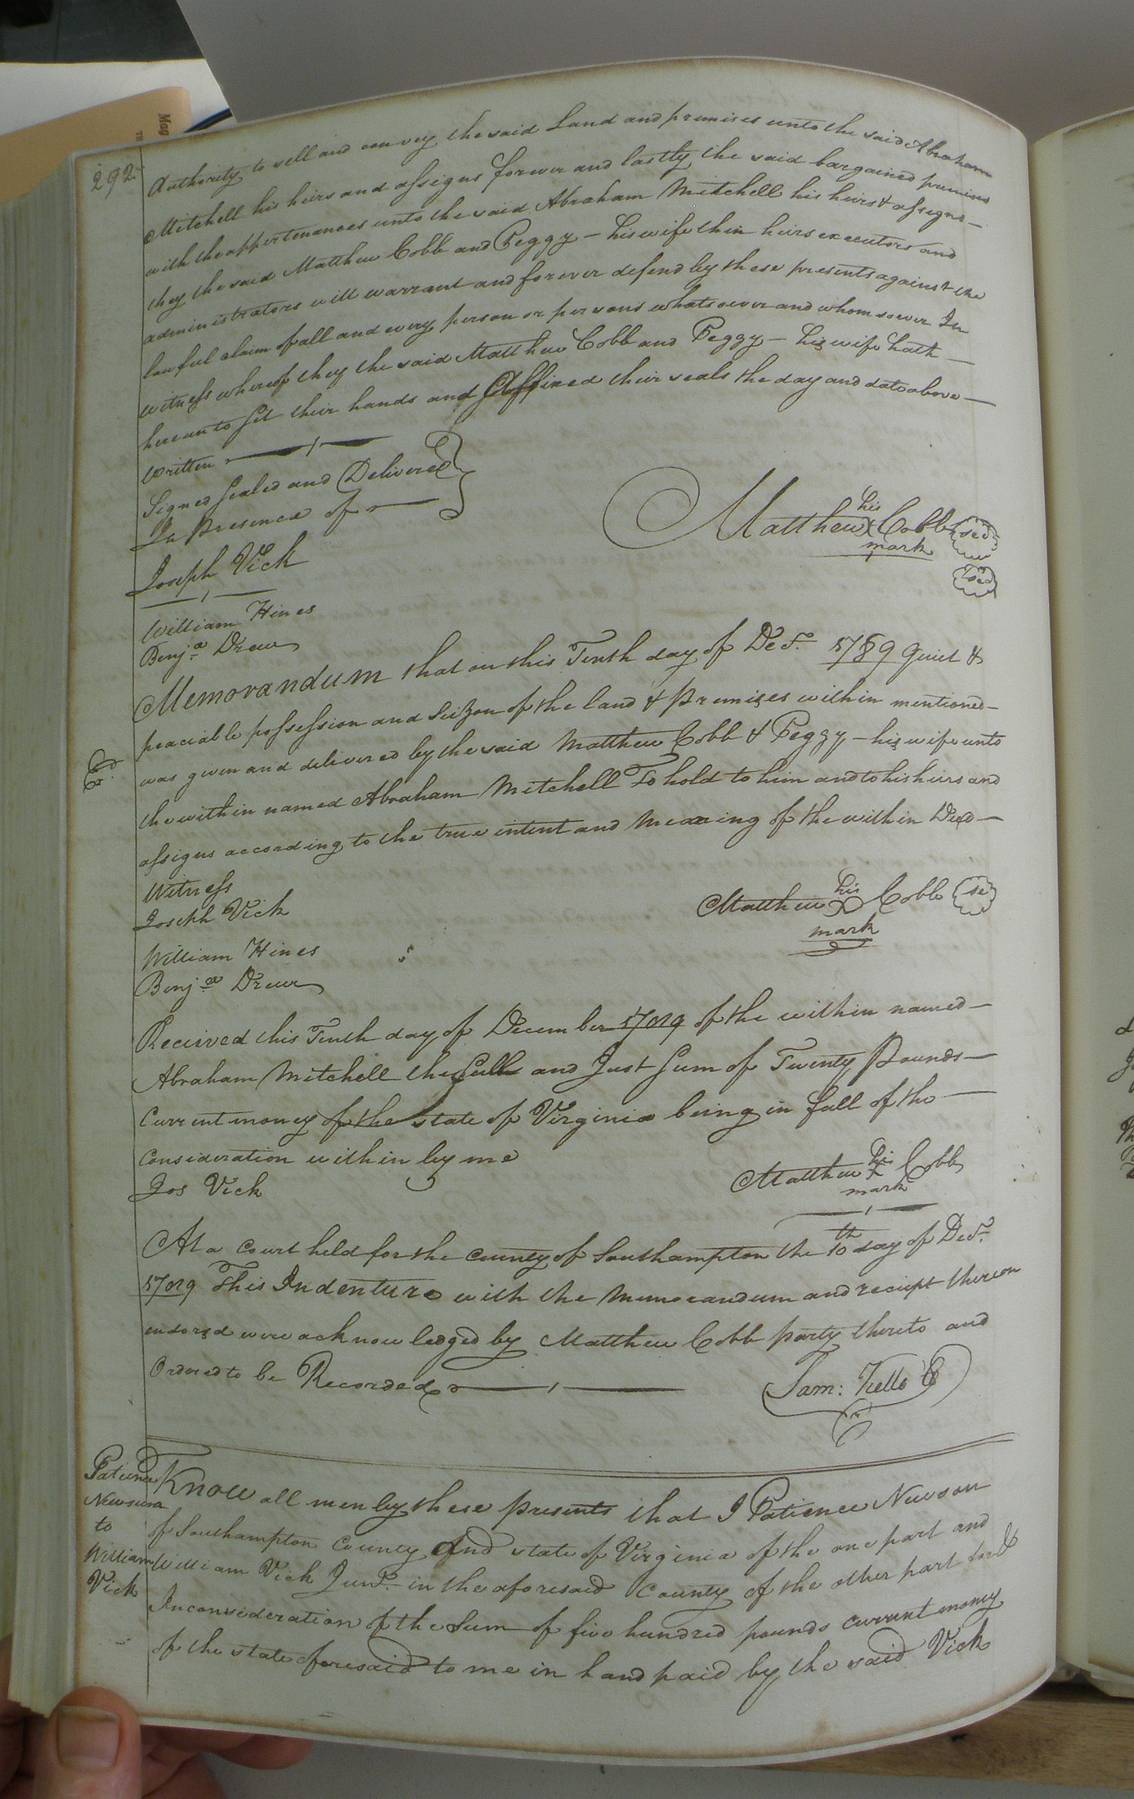 292
Authority to sell and convey the said Land and premises unto the said Abraham
Mitchell his heirs and assigns forever and lastly the said bargained premises
with the appertenances unto the said Abraham Mitchell his heirs & assigns
they the said Matthew Cobb and Peggy his wife their heirs executors and
administrators will warrant and forever defend by these presents against the
lawful claim of all and every person or persons whatsoever and whomsoever In
witness whereof they the said Matthew Cobb and Peggy his wife hath
hereunto set their hands and Affixed their seals the day and date above
Written
Signed Sealed and Delivered
In Presence of
Joseph Vick
William Hines
Benja. Drew
Matthew his Cobb Sed
mark
Sed
Memorandum that on this Tenth day of Decr. 1789 Quiet &
peaciable possession and Seizon of the land & Premises within mentioned
was given and delivered by the said Matthew Cobb & Peggy his wife unto
the within named Abraham Mitchell To hold to him and to his heirs and
assigns according to the true intent and Meaning of the within Deed
Witness
Joseph Vick
William Hines
Benja. Drew
Matthew his Cobb Se
mark
Received this Tenth day of December 1789 of the within named
Abraham Mitchell the full and Just Sum of Twenty Pounds
Current money of the state of Virginia being in full of the
Consideration within by me
Jos Vick
Matthew his Cobb
mark
At a Court held for the County of Southampton the 10th day of Decr.
1789 This Indenture with the Memorandum and reciept thereon
indorsd were acknowledged by Matthew Cobb party thereto and
Ordered to be Recorded
Sam: Kello C
Patience
Newsum
to
William
Vick
Know all men by these presents that I Patience Newson
of Southampton County and state of Virginia of the one part and
William Vick Junr. in the aforesaid County of the other part
Inconsideration of the Sum of five hundred pounds current money
of the state aforesaid to me in hand paid by the said Vick